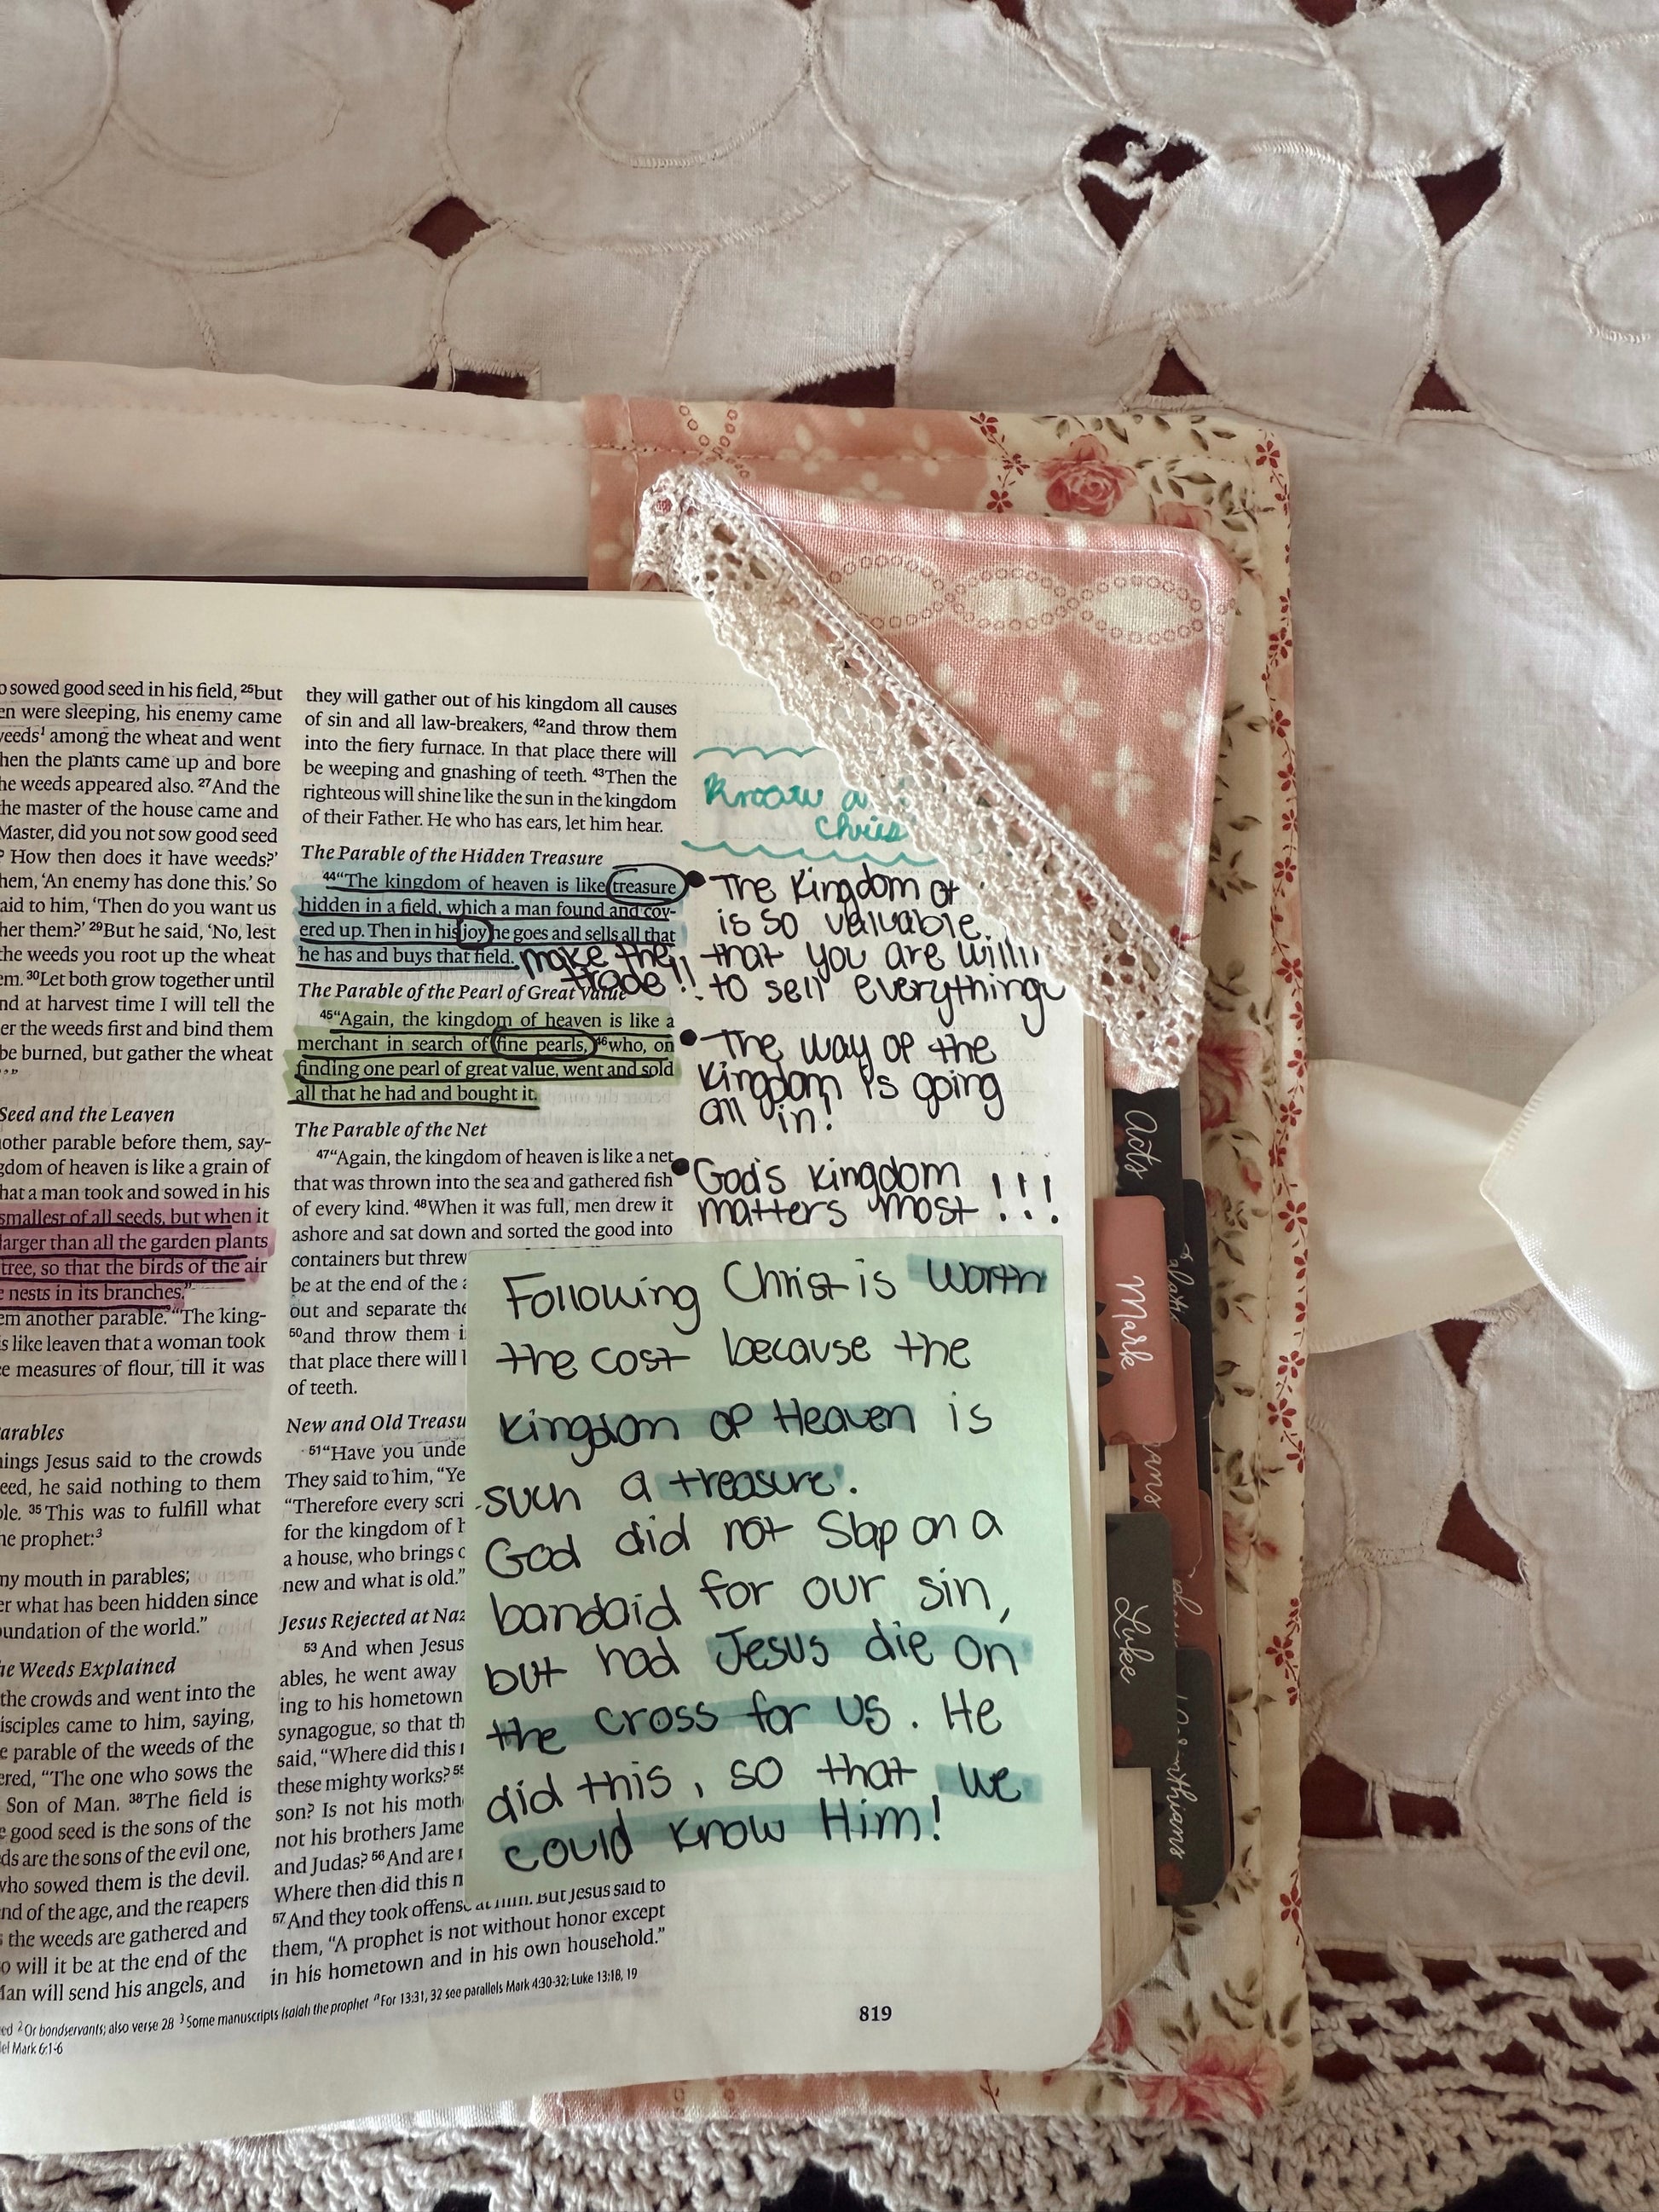 o sowed good seed in his field, 25but
en were sleeping, his enemy came
weeds1 among the wheat and went
hen the plants came up and bore
he weeds appeared also. 27And the
the master of the house came and
Master, did you not sow good seed
? How then does it have weeds?’
hem, ‘An enemy has done this.’ So
aid to him, ‘Then do you want us
her them?’ 29But he said, ‘No, lest
the weeds you root up the wheat
em. 30Let both grow together until
nd at harvest time I will tell the
er the weeds first and bind them
be burned, but gather the wheat
’”
Seed and the Leaven
nother parable before them, say-
gdom of heaven is like a grain of
hat a man took and sowed in his
smallest of all seeds, but when it
larger than all the garden plants
tree, so that the birds of the air
e nests in its branches.”
em another parable. “The king-
is like leaven that a woman took
e measures of flour, till it was
Parables
hings Jesus said to the crowds
eed, he said nothing to them
ble. 35This was to fulfill what
he prophet:3
my mouth in parables;
er what has been hidden since
oundation of the world.”
he Weeds Explained
the crowds and went into the
disciples came to him, saying,
e parable of the weeds of the
ered, “The one who sows the
Son of Man. 38The field is
e good seed is the sons of the
ds are the sons of the evil one,
who sowed them is the devil.
nd of the age, and the reapers
s the weeds are gathered and
o will it be at the end of the
Man will send his angels, and
they will gather out of his kingdom all causes
of sin and all law-breakers, 42and throw them
into the fiery furnace. In that place there will
be weeping and gnashing of teeth. 43Then the
righteous will shine like the sun in the kingdom
of their Father. He who has ears, let him hear.
The Parable of the Hidden Treasure
44“The kingdom of heaven is like treasure
hidden in a field, which a man found and cov-
ered up. Then in his joy he goes and sells all that
he has and buys that field.
make the
trade!!
The Parable of the Pearl of Great Value
45“Again, the kingdom of heaven is like a
merchant in search of fine pearls, 46who, on
finding one pearl of great value, went and sold
all that he had and bought it.
The Parable of the Net
47“Again, the kingdom of heaven is like a net
that was thrown into the sea and gathered fish
of every kind. 48When it was full, men drew it
ashore and sat down and sorted the good into
containers but threw
be at the end of the a
out and separate the
50and throw them i
that place there will
of teeth.
New and Old Treasu
51“Have you unde
They said to him, “Ye
“Therefore every scri
for the kingdom of h
a house, who brings o
new and what is old.”
Jesus Rejected at Naz
53And when Jesus
ables, he went away
ing to his hometown
synagogue, so that th
said, “Where did this
these mighty works? 55
son? Is not his moth
not his brothers Jame
and Judas? 56And are
Where then did this
57And they took offense at him. But Jesus said to
them, “A prophet is not without honor except
in his hometown and in his own household.”
ed 2Or bondservants; also verse 28 3Some manuscripts Isaiah the prophet For 13:31, 32 see parallels Mark 4:30-32; Luke 13:18, 19
el Mark 6:1-6
819
Know
Chris
• The Kingdom of
is so valuable,
that you are willi
to sell everything
• The way of the
Kingdom is going
all in!
• God's Kingdom
matters most !!!
Following Christ is worth
the cost because the
Kingdom of Heaven is
such a treasure!.
God did not slap on a
bandaid for our sin,
but had Jesus die on
the cross for us. He
did this, so that we
could know Him!
Acts
Mark
Luke